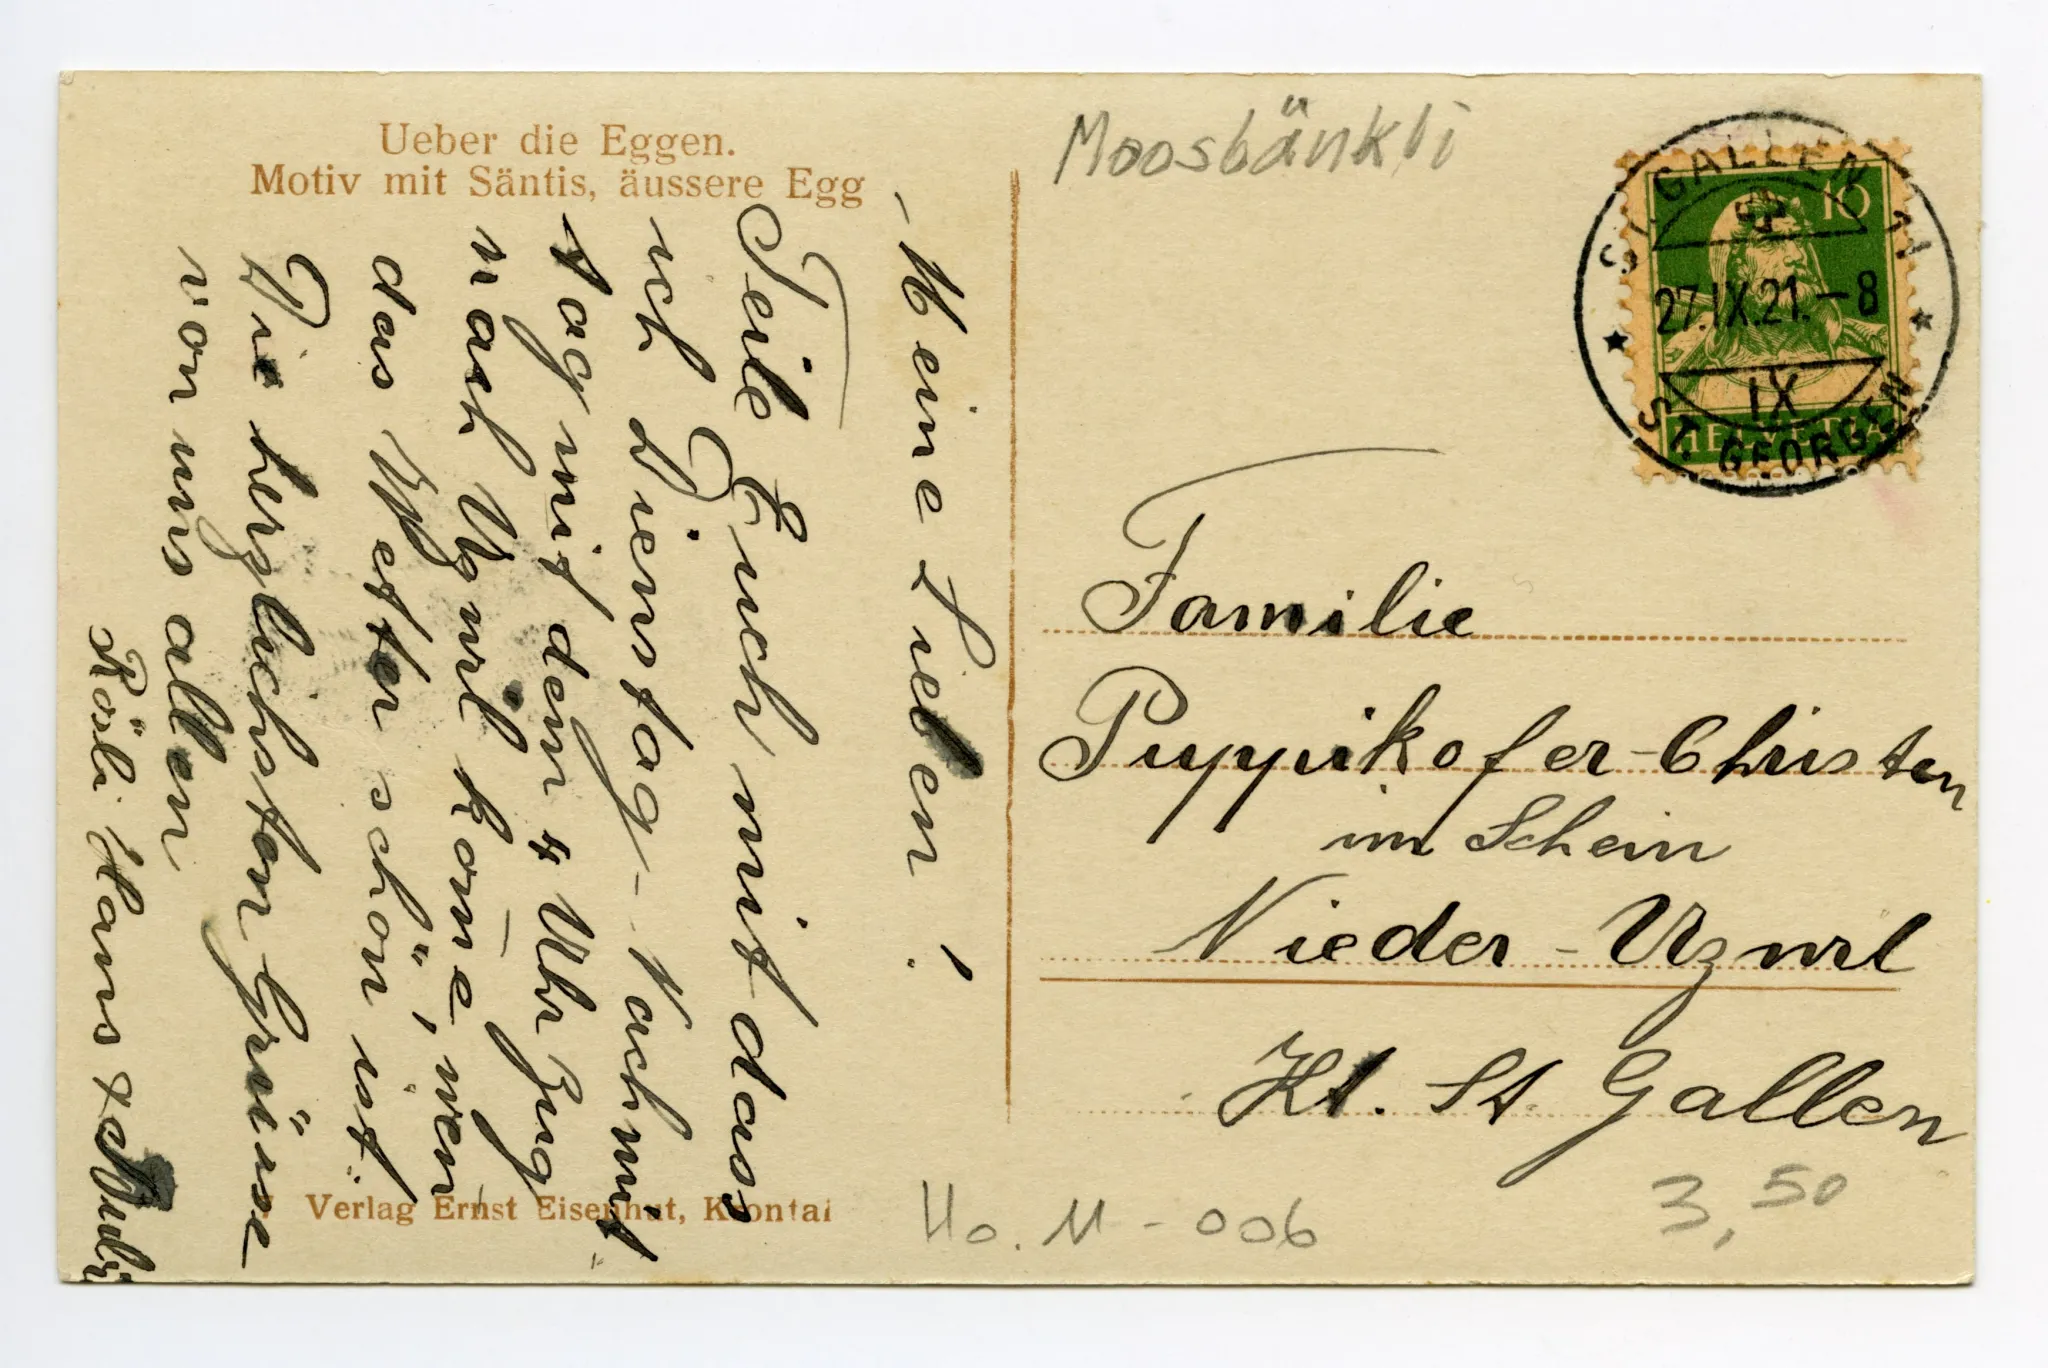 Ueber die Eggen.
Motiv mit Säntis, äussere Egg
Meine Lieben!
Teile Euch mit dass
ich Dienstag-Nachmit=
tag mit dem 4 Uhr Zug
nach Uznil kom̅e, wen
das Wetter schön ist.
Die herzlichsten Grüsse
von uns allen
Rösli Hans &
Verlag Ernst Eisenhut, Krontal
Moosbänkli
ST. GALLEN 11
27.IX.21.-8
IX
ST. GEORGEN
10
HELVETIA
Familie
Puppikofer-Christen
im Schein
Nieder-Uzwil
Kt. St. Gallen
Ho. M-006
3,50